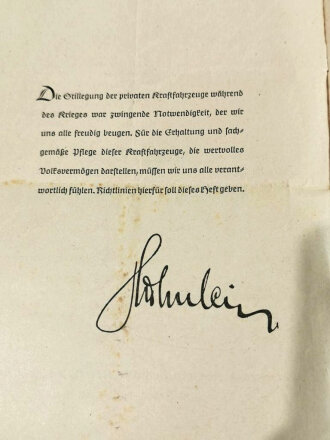 Die Stillegung der privaten Kraftfahrzeuge während
des Krieges war zwingende Notwendigkeit, der wir
uns alle freudig beugen. Für die Erhaltung und sach-
gemäße Pflege dieser Kraftfahrzeuge, die wertvolles
Volksvermögen darstellen, müssen wir uns alle verant-
wortlich fühlen. Richtlinien hierfür soll dieses Heft geben.